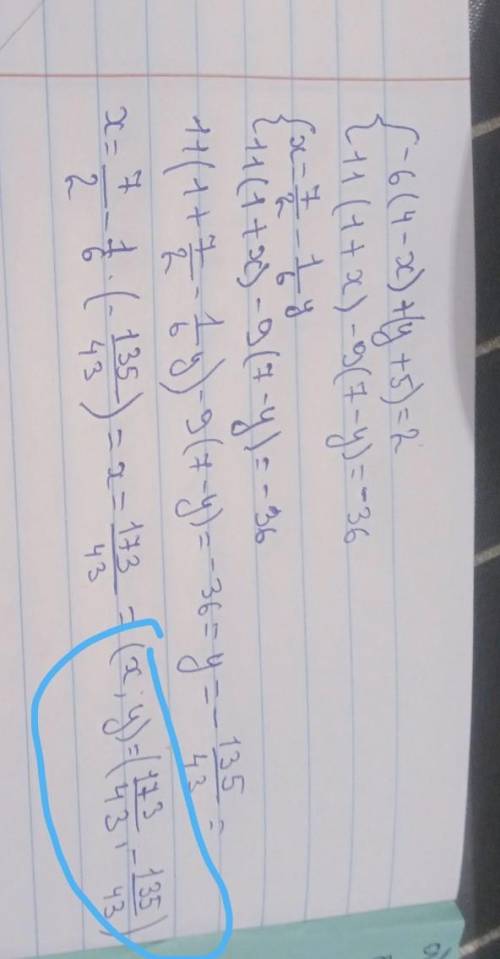 {-6(4-x)+(y+5)=2
{11(1+x)-9(7-y)=-36
{x=7/2-1/6y
{11(1+x)-9(7-y)=-36
11(1+7/2-1/6y)-9(7-y)=-36=y=-135/43=
x=7/2-1/6·(-135/43)=x=173/43=(x;y)=(173/43,-135/43)